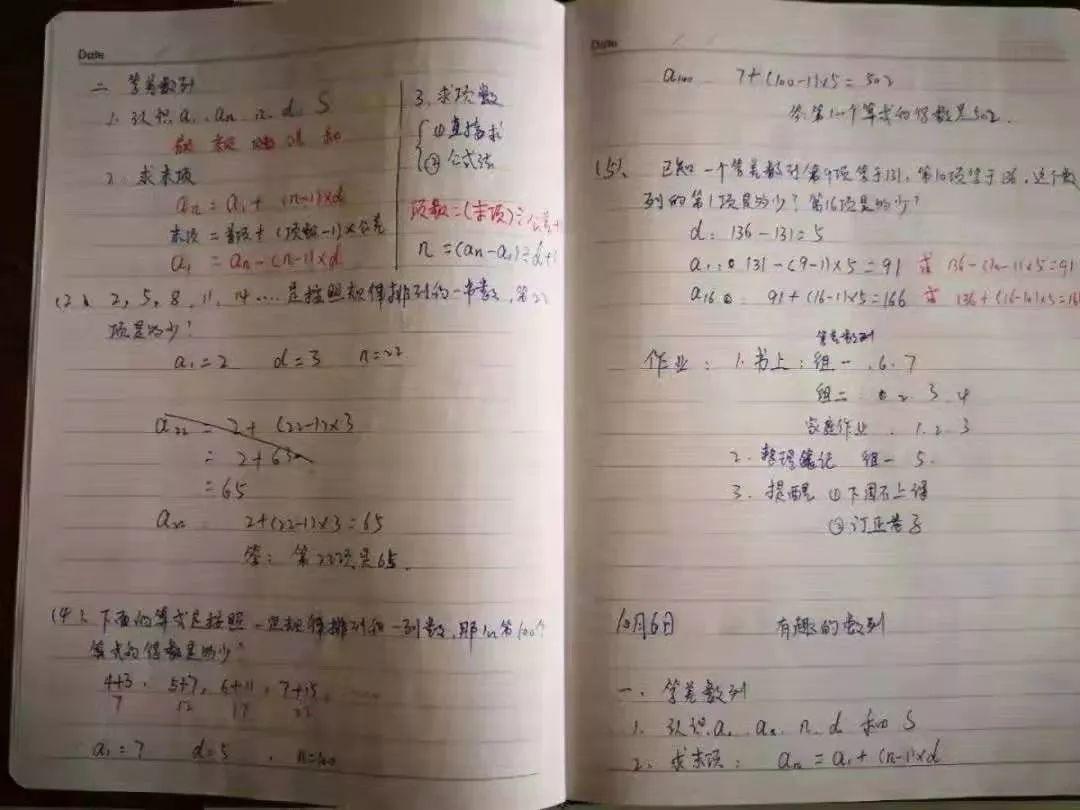 Date
二 等差数列
1. 认识 a₁、aₙ、n、d、S
首项 末项 项数 公差 和
2. 求末项
aₙ = a₁ + (n-1)×d
末项 = 首项 + (项数-1)×公差
a₁ = aₙ-(n-1)×d
3. 求项数
① 直接求
② 公式法
项数=(末项)÷公差+
n =(aₙ-a₁)÷d+1
(2)、2, 5, 8, 11, 14 .... 是按照规律排列的一串数, 第22
项是多少?
a₁=2 d=3 n=22
a₂₂ = 2+ (22-1)×3
= 2+63
= 65
a₂₂ 2+(22-1)×3=65
答: 第22项是65.
(4)、下面的算式是按照一定规律排列的一列数, 那么第100个
算式的得数是多少?
4+3, 5+7, 6+11, 7+15,
7 12 17 22
a₁=7 d=5, n=100
Date
a₁₀₀ 7+(100-1)×5=502
答: 第100个算式的得数是502.
(5)、已知一个等差数列第9项等于131, 第10项等于136, 这个数
列的第1项是多少? 第16项是多少?
d: 136-131=5
a₁: 131-(9-1)×5=91 或 136-(10-1)×5=91
a₁₆: 91+(16-1)×5=166 或 136+(16-10)×5=16
等差数列
作业: 1. 书上: 组一 .6.7
组二 2 3 4
家庭作业. 1.2.3
2. 整理笔记 组一 5.
3. 提醒 ① 下周不上课
② 订正卷子
10月6日 有趣的数列
一、等差数列
1. 认识 a₁ aₙ n d 和 S
2. 求末项: aₙ = a₁+(n-1)×d